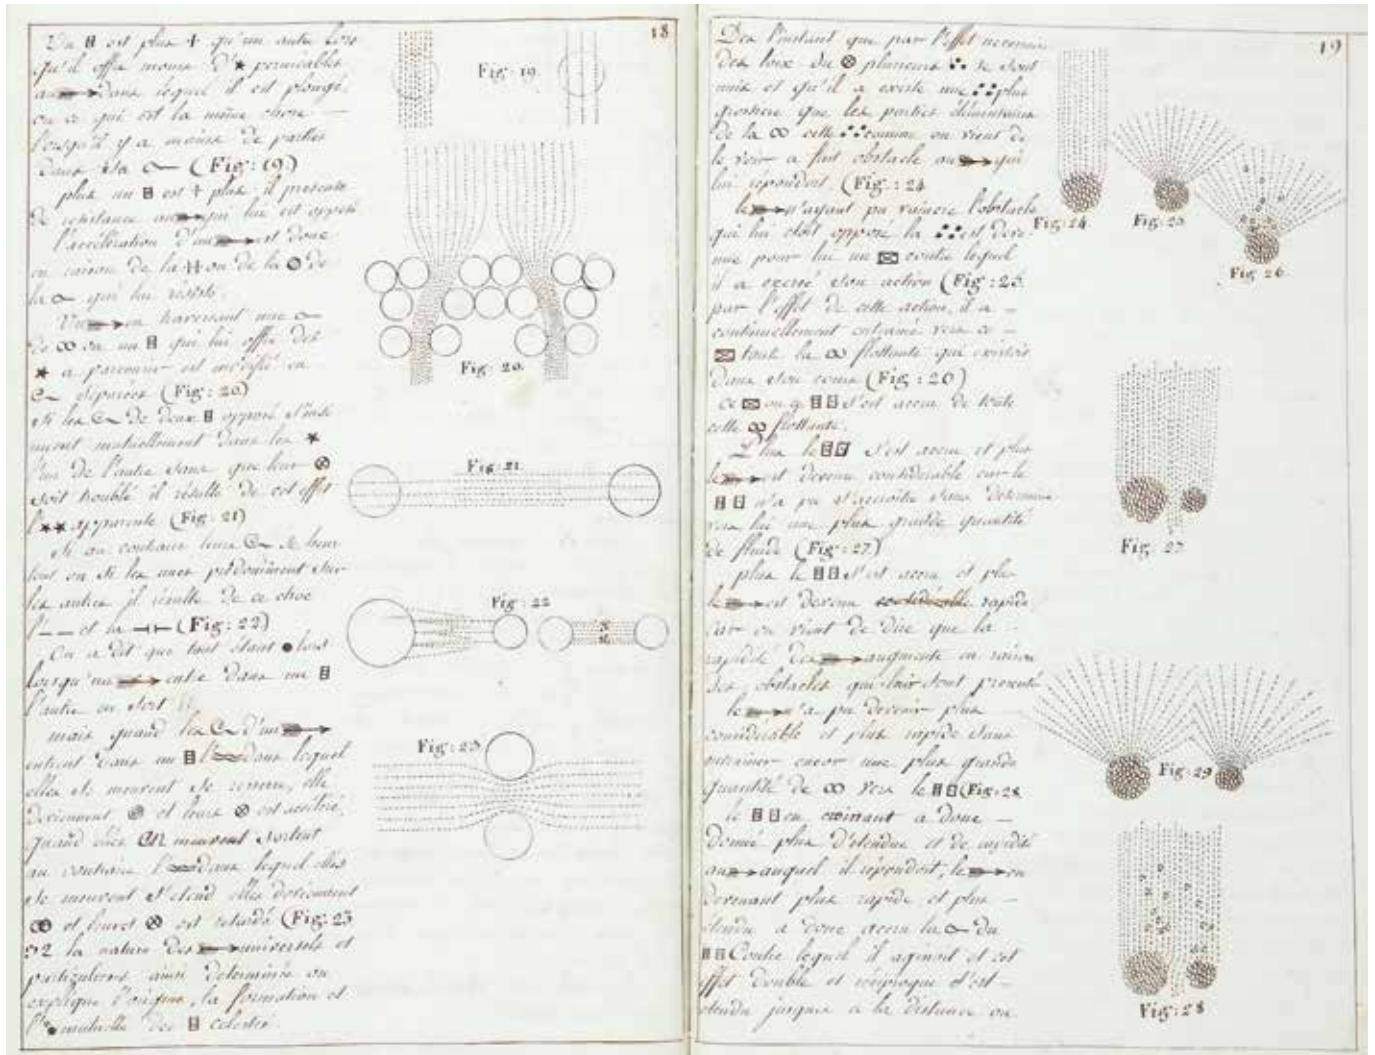 18
Un 🀫 est plus + qu'un autre lors
qu'il offre moins d'★ permeables
au ➳ dans lequel il est plongé,
ou ce qui est la même chose —
lorsqu'il y a moins de parties
dans sa (Fig: 19.)
plus un est + plus il presente
de resistance au ➳ qui lui est opposé
l'accélération d'un ➳ est donc
en raison de la ou de la de
la qui lui résiste.
Un ➳ en traversant une
de ∞ ou un qui lui offre des
★ a parcourir est modifié en
séparées (Fig: 20)
si les de deux opposé s'insi
nuent mutuellement dans les ★
l'un de l'autre sans que leur ⊗
soit troublé il résulte de cet effet
l'★★ apparente (Fig: 21)
Si au contraire leurs se heur
tent ou si les unes prédominent sur
les autres il résulte de ce choc
l'— — et la (Fig: 22)
On a dit que tout étant ● lors
lorsqu'un ➳ entre dans un
l'autre en sort
mais quand les d'un ➳
entrent dans un l' dans lequel
elles se meuvent se resserre, elle
deviennent et leurs ⊗ est accéléré,
quand elles en meuvent sortent
au contraire l' dans lequel elles
se meuvent s'etend elles deviennent
et leurs ⊗ est retardé (Fig: 23
92 la nature des ➳ universels et
particuliers ainsi determinée on
explique l'origine, la formation et
l' mutuelle des celestes.
Fig: 19.
Fig: 20.
Fig: 21
Fig: 22
Fig: 23
19
Des l'instant que par l'effet necessaire
des loix du ⊗ plusieurs se sont
unis et qu'il a existé une plus
grossiere que les parties élémentaires
de la ∞ cette comme on vient de
le voir a fait obstacle au ➳ qui
lui répondoit (Fig: 24
le ➳ n'ayant pu vaincre l'obstacle
qui lui étoit opposé la est deve
nue pour lui un contre lequel
il a exercé son action (Fig: 25.
par l'effet de cette action, il a —
continuellement entrainé vers ce —
toute la ∞ flottante qui existoit
dans son cours (Fig: 26)
ce ou q. s'est accru de toute
cette ∞ flottante.
Plus le s'est accru et plus
le ➳ est devenu considerable car le
n'a pu s'accroitre sans determiner
vers lui une plus grande quantité
de fluide (Fig: 27)
plus le s'est accru et plus
le ➳ est devenu rapide
car on vient de dire que la —
rapidité des ➳ augmente en raison
des obstacles qui leur sont presenté
le ➳ n'a pu devenir plus
considerable et plus rapide sans
entrainer encor une plus grande
quantité de ∞ vers le (Fig: 28
le en croissant a donc —
donné plus d'étendue et de rapidité
au ➳ auquel il répondoit, le ➳ en
devenant plus rapide et plus —
étendu a donc accru la du
Contre lequel il agissoit et cet
effet double et réciproque s'est —
étendu jusques a la distance ou
Fig: 24.
Fig: 25
Fig: 26
Fig: 27
Fig: 29
Fig: 28